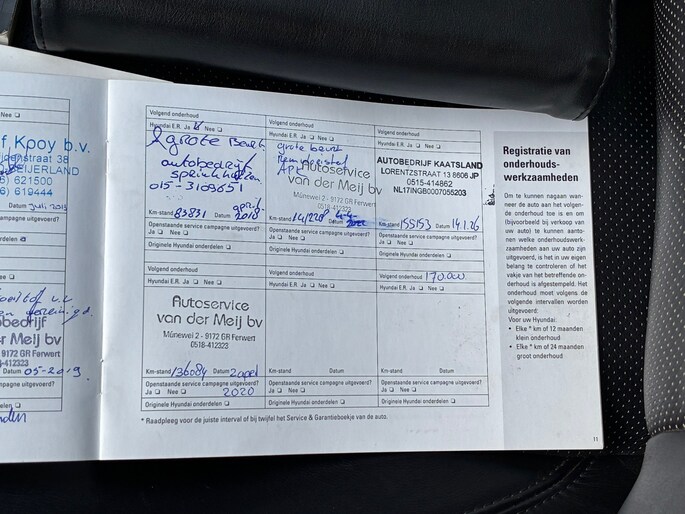 Nee ☐
f, Kpoy b.v.
621500
619444
Datum juli. 2015
campagne uitgevoerd?
Nee ☐
van der Meij bv
- 9172 GR Ferwert
518-412323
Datum 05-2019
campagne uitgevoerd?
Volgend onderhoud
Hyundai E.R. Ja ☐ Nee ☐
grote Beurt
autobedrijf
015-3109651
Km-stand 83831 Datum april 2018
Openstaande service campagne uitgevoerd?
Ja ☐ Nee ☐
Originele Hyundai onderdelen ☐
Volgend onderhoud
Hyundai E.R. Ja ☐ Nee ☐
grote beurt
APK
Autoservice
van der Meij bv
Mûnewei 2 - 9172 GR Ferwert
0518-412323
Km-stand 141228 Datum
Openstaande service campagne uitgevoerd?
Ja ☐ Nee ☐
Originele Hyundai onderdelen ☐
Volgend onderhoud
Hyundai E.R. Ja ☐ Nee ☐
AUTOBEDRIJF KAATSLAND
LORENTZSTRAAT 13 8606 JP
0515-414862
NL17INGB0007055203
Km-stand 155153 Datum 14.1.26
Openstaande service campagne uitgevoerd?
Ja ☐ Nee ☐
Originele Hyundai onderdelen ☐
Volgend onderhoud
Hyundai E.R. Ja ☐ Nee ☐
Autoservice
van der Meij bv
Mûnewei 2 - 9172 GR Ferwert
0518-412323
Km-stand 136084 Datum 2 april
2020
Openstaande service campagne uitgevoerd?
Ja ☐ Nee ☐
Originele Hyundai onderdelen ☐
Volgend onderhoud
Hyundai E.R. Ja ☐ Nee ☐
Km-stand Datum
Openstaande service campagne uitgevoerd?
Ja ☐ Nee ☐
Originele Hyundai onderdelen ☐
Volgend onderhoud 170.000
Hyundai E.R. Ja ☐ Nee ☐
Km-stand Datum
Openstaande service campagne uitgevoerd?
Ja ☐ Nee ☐
Originele Hyundai onderdelen ☐
* Raadpleeg voor de juiste interval of bij twijfel het Service & Garantieboekje van de auto.
Registratie van
onderhouds-
werkzaamheden
Om te kunnen nagaan wan-
neer de auto aan het volgen-
de onderhoud toe is en om
(bijvoorbeeld bij verkoop van
uw auto) te kunnen aanto-
nen welke onderhoudswerk-
zaamheden aan uw auto zijn
uitgevoerd, is het in uw eigen
belang te controleren of het
vakje van het betreffende on-
derhoud is afgestempeld. Het
onderhoud moet volgens de
volgende intervallen worden
uitgevoerd:
Voor uw Hyundai:
• Elke * km of 12 maanden
klein onderhoud
• Elke * km of 24 maanden
groot onderhoud
11